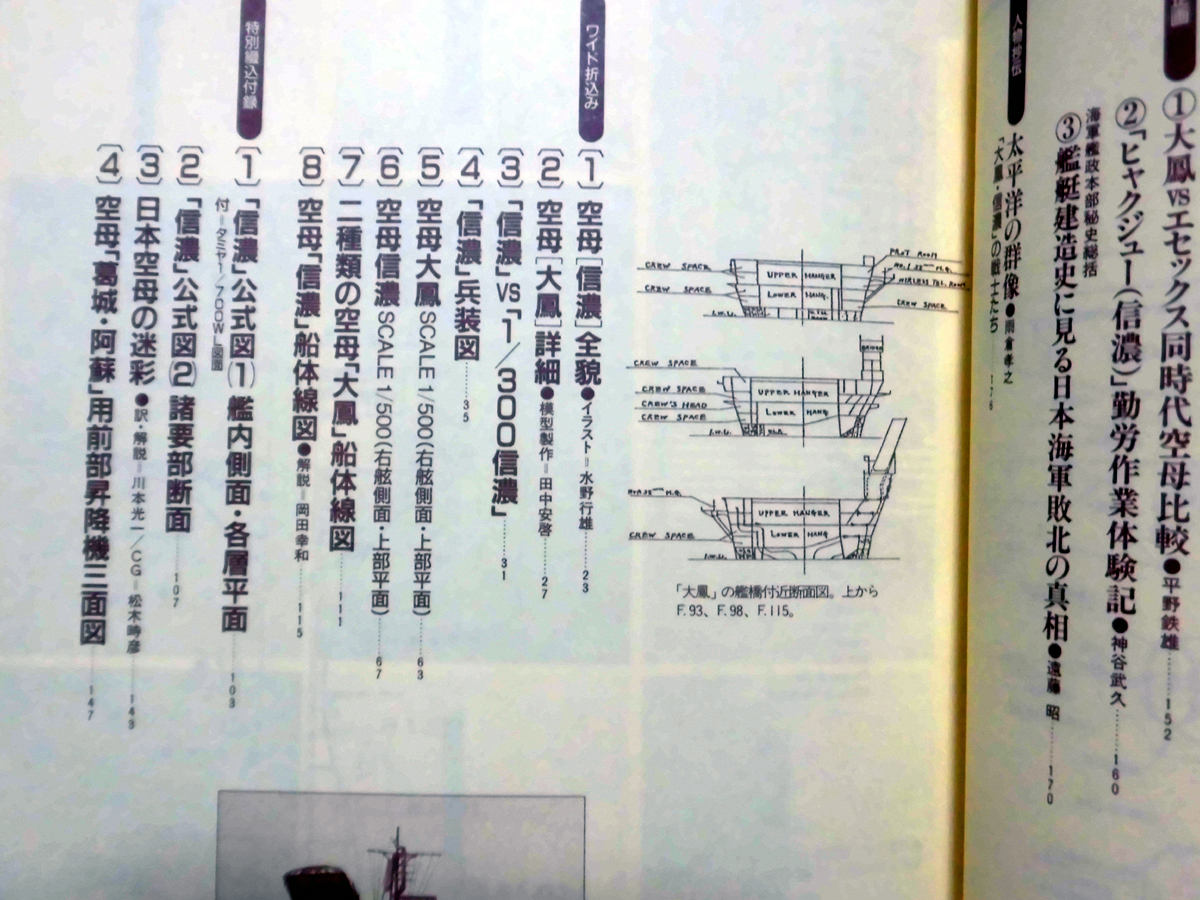 ①大鳳vsエセックス同時代空母比較●平野鉄雄……152
②「ヒャクジュー(信濃)」勤労作業体験記●神谷武久……160
海軍艦政本部秘史総括
③艦艇建造史に見る日本海軍敗北の真相●遠藤 昭……170
太平洋の群像●雨倉孝之
「大鳳・信濃」の戦士たち……176
CREW SPACE
CREW SPACE
UPPER HANGER
LOWER HANG.
L.W.L.
CREW SPACE
CREW SPACE
CREW SPACE
CREW'S HEAD
CREW SPACE
UPPER HANGER
LOWER HANG
L.W.L.
BRIDGE
CREW SPACE
UPPER HANGER
LOWER HANG
L.W.L.
「大鳳」の艦橋付近断面図。上から
F.93、F.98、F.115。
ワイド折込み
〔1〕空母[信濃]全貌●イラスト=水野行雄……23
〔2〕空母[大鳳]詳細●模型製作=田中安啓……27
〔3〕「信濃」vs「1/300信濃」……31
〔4〕「信濃」兵装図……35
〔5〕空母大鳳 SCALE 1/500(右舷側面・上部平面)……63
〔6〕空母信濃 SCALE 1/500(右舷側面・上部平面)……67
〔7〕二種類の空母「大鳳」船体線図……111
〔8〕空母「信濃」船体線図●解説=岡田幸和……115
特別綴込付録
〔1〕「信濃」公式図(1)艦内側面・各層平面……103
付=タミヤ1/700W.L図面
〔2〕「信濃」公式図(2)諸要部断面……107
〔3〕日本空母の迷彩●訳・解説=川本光一/CG=松木崎彦……143
〔4〕空母「葛城・阿蘇」用前部昇降機三面図……147